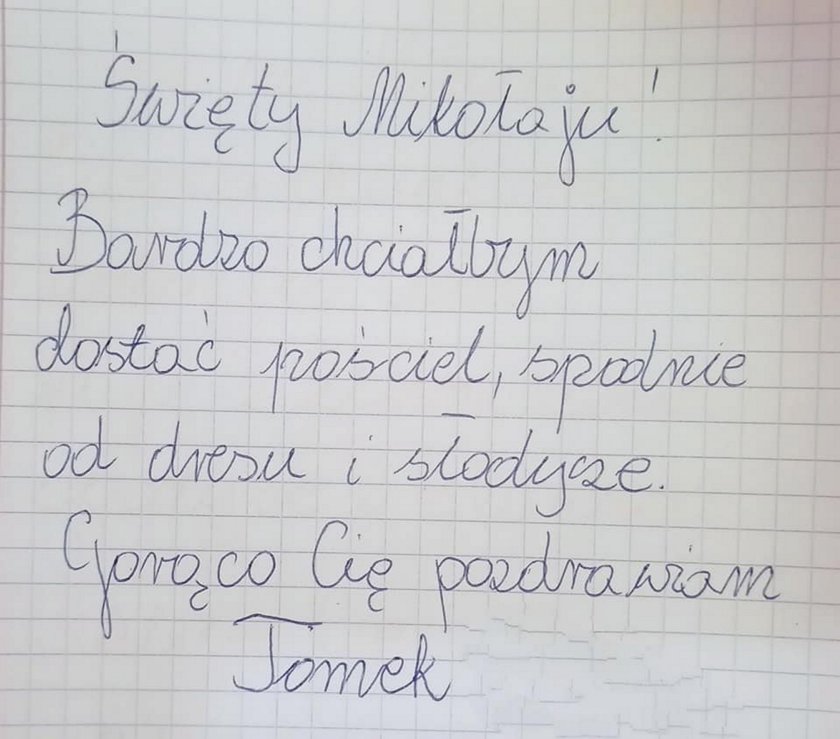 Święty Mikołaju!
Bardzo chciałbym
dostać pościel, spodnie
od dresu i słodycze.
Gorąco Cię pozdrawiam
Tomek